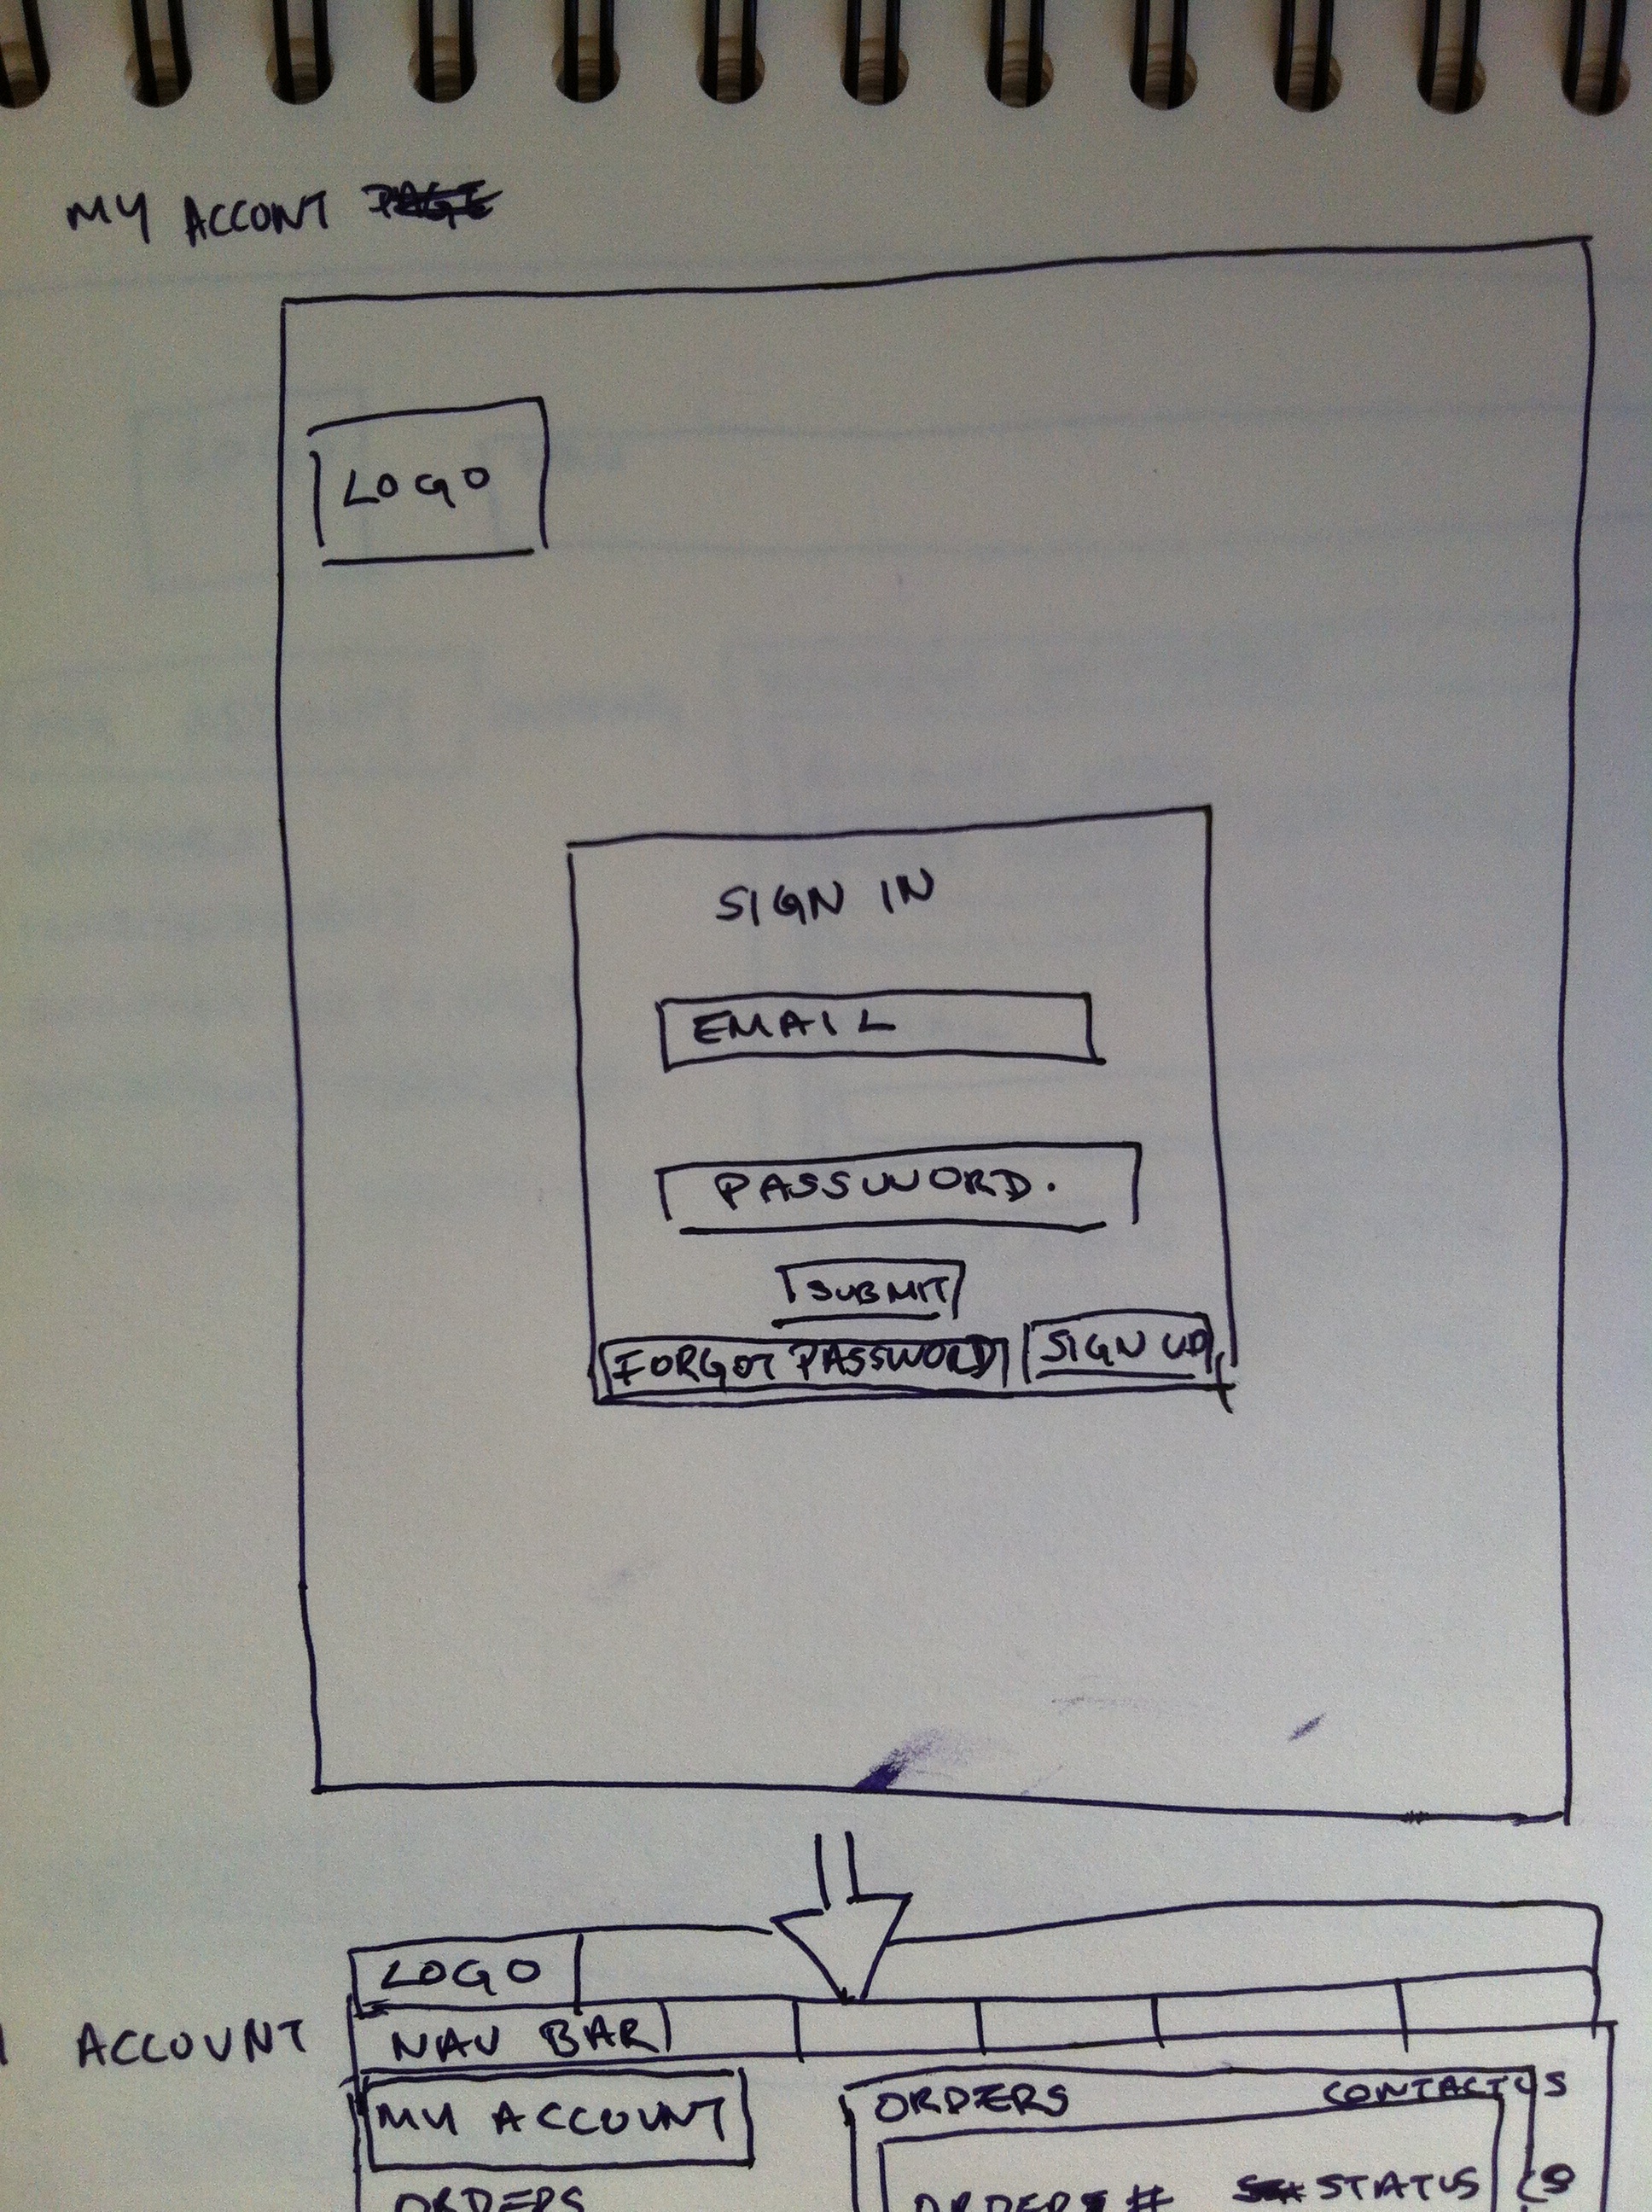 MY ACCONT
LOGO
SIGN IN
EMAIL
PASSWORD.
SUBMIT
FORGOT PASSWORD SIGN UP
LOGO
ACCOUNT NAV BAR
MY ACCOUNT ORDERS CONTACT US
ORDERS ORDERS # STATUS